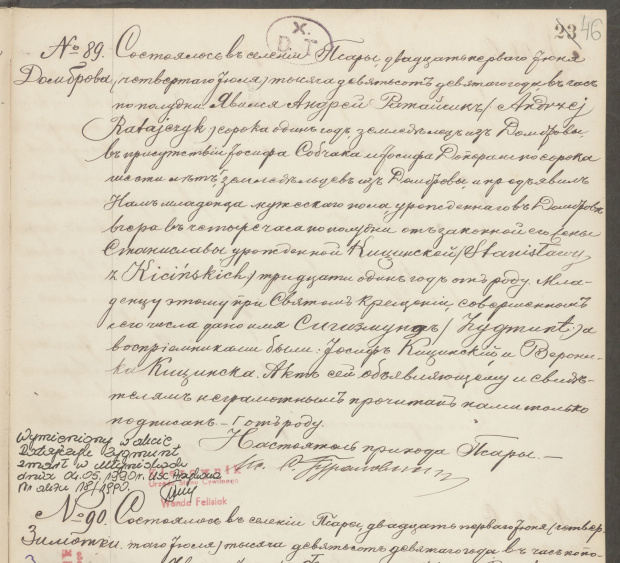 X.
D. J.
23 46
№ 89. Состоялось въ селеніи Псары, двадцать перваго Іюня
Домброва (четвертаго Іюля) тысяча девятьсотъ девятаго года, въ часъ
по полудни. Явился Андрей Ратайчикъ (Andrzej
Ratajczyk) сорока одинъ годъ, земледѣлецъ изъ Домбровы,
въ присутствіи Іосифа Собчака и Іосифа по сорока
шести лѣтъ, земледѣльцевъ изъ Домбровы и предъявилъ
Намъ младенца мужескаго пола урожденнаго въ Домбровѣ
вчера въ четыре часа по полудни отъ законной его жены
Станиславы урожденной Кицинской (Stanisławy
z Kicińskich) тридцати одинъ годъ отъ роду. Мла-
денцу этому при Святомъ Крещеніи, совершенномъ
сего числа дано имя Сигизмундъ (Zygmunt), а
воспріемниками были: Іосифъ Кицинскій и Верони-
ка Кицинска. Актъ сей объявляющему и свидѣ-
телямъ неграмотнымъ прочитанъ нами только
подписанъ. — отъ роду.
Настоятель прихода Псары. —
Wymieniony w akcie
Ratajczyk Zygmunt
zmarł w
dnia 04.05.1990 r. USC
Nr aktu 18/1990
Kierownik
Urzędu Stanu Cywilnego
Wanda Felisiak
№ 90. Состоялось въ селеніи Псары, двадцать перваго Іюня (четвер-
Зимотки. таго Іюля) тысяча девятьсотъ девятаго года въ часъ попо-